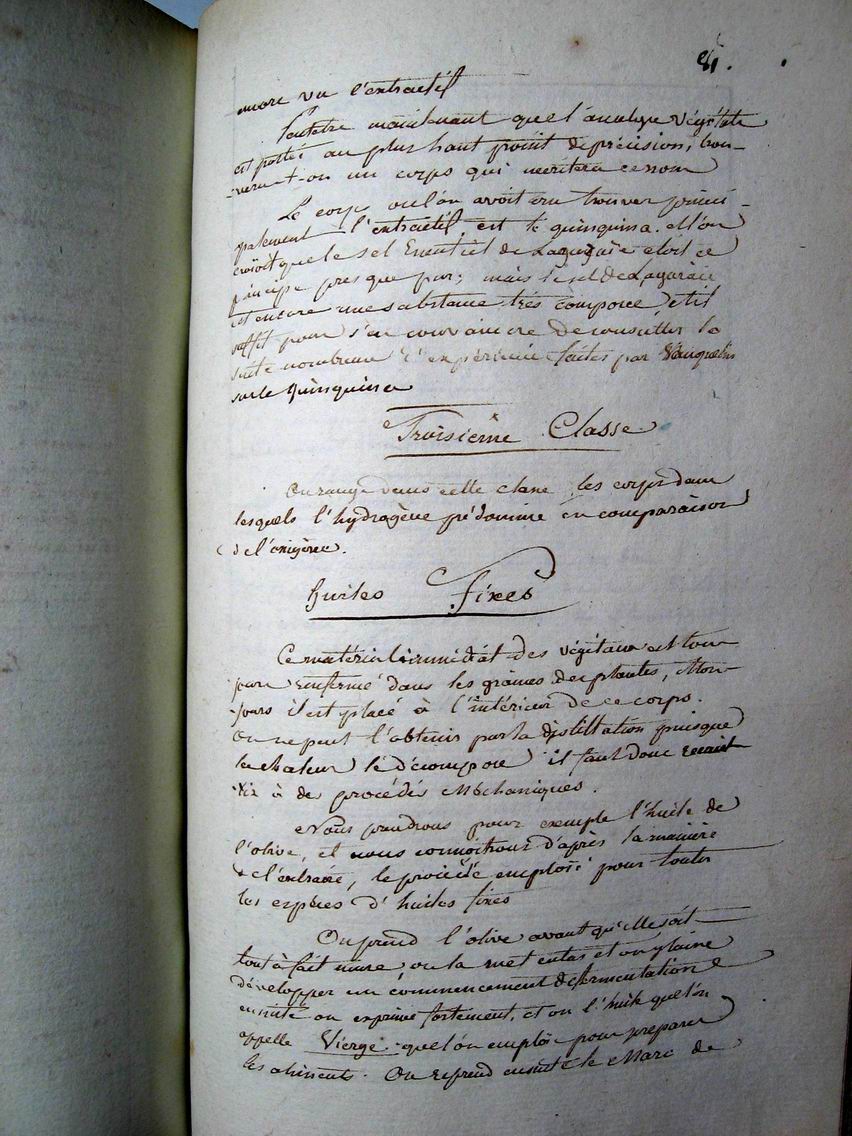 81.
encore vu l'extractif
Peutetre maintenant que l'analyse végétale
est portée au plus haut point de précision, trou-
-vera-t-on un corps qui meritera ce nom
Le corps ou l'on avoit cru trouver princi-
palement l'extractif, est le quinquina. et l'on
croioit que le sel Essentiel de Lagaraie etoit ce
principe presque pur; mais le sel de Lagaraie
est encore une substance très composée, et il
suffit pour s'en convaincre de consulter la
suite nombreuse d'expérience faites par Vauquelin
sur le Quinquina
Troisieme Classe
On range dans cette classe les corps dans
lesquels l'hydrogène prédomine en comparaison
de l'oxigène.
huiles fixes
Ce matérial immédiat des végétaux est tou-
jours renfermé dans les graines des plantes, et tou-
-jours il est placé à l'intérieur de ce corps.
On ne peut l'obtenir par la distillation puisque
la chaleur le décompose il faut donc
à des procédés Méchaniques.
Nous prendrons pour exemple l'huile de
l'olive, et nous connoitrons d'après la manière
de l'extraire, le procédé emploïé pour toutes
les espèces d'huiles fixes
On prend l'olive avant qu'elle soit
tout à fait mure, on la met en tas et on y laisse
développer un commencement de fermentation
ensuite on exprime fortement, et on a l'huile que l'on
appelle Vierge que l'on emploïe pour préparer
les aliments. On reprend ensuite le Marc de